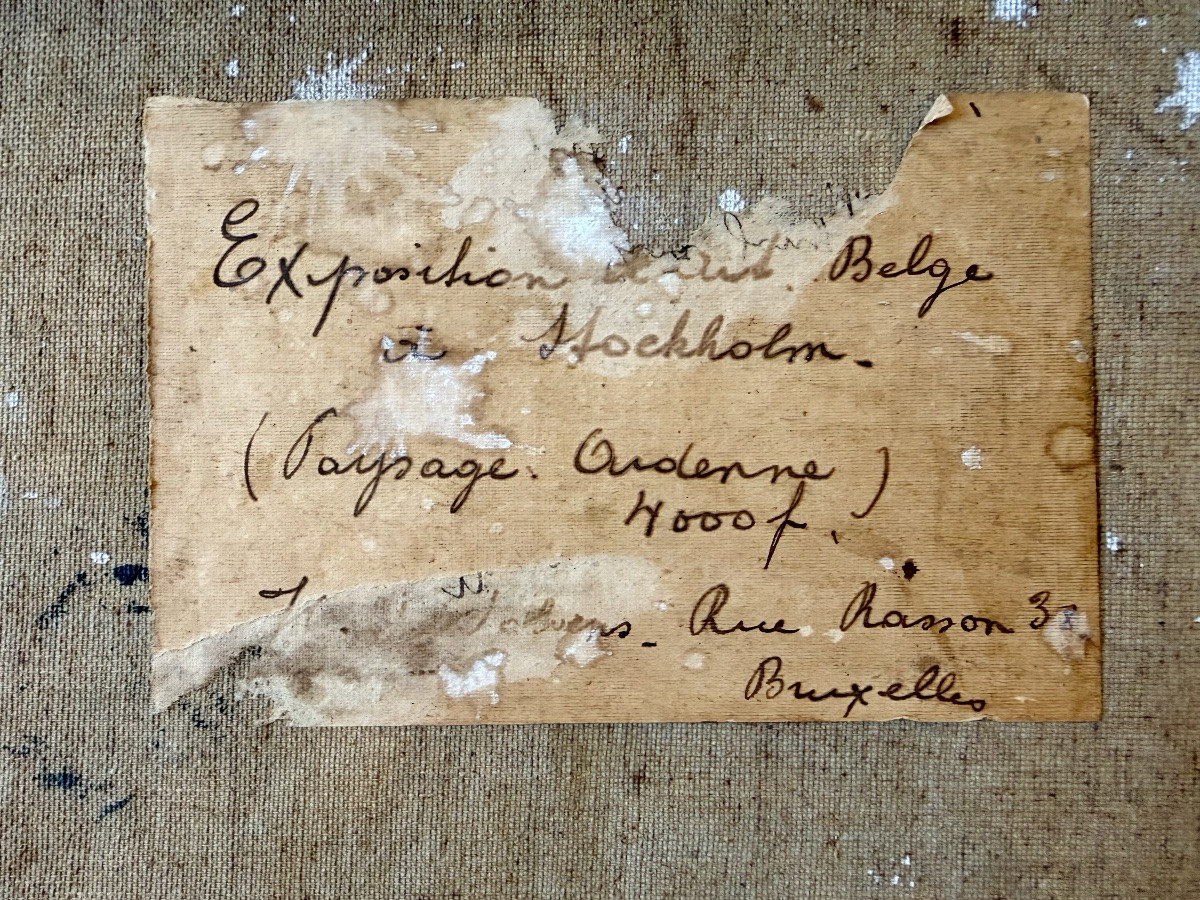 Exposition d'art Belge
à Stockholm.
(Paysage. Ardenne)
4000 f.
Rue Rasson 3
Bruxelles